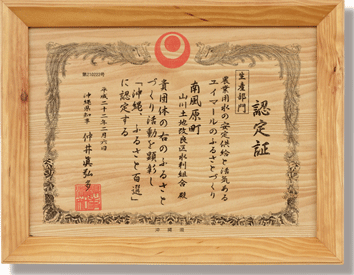 認定証
生産部門
農業用水の安定供給と活気ある
エイマールのふるさとづくり
南風原町
山川土地改良区水利組合 殿
貴団体の右のふるさと
づくり活動を顕彰し
「沖縄、ふるさと百選」
に認定する
平成二十二年二月六日
沖縄県知事 仲井眞弘多
沖縄県